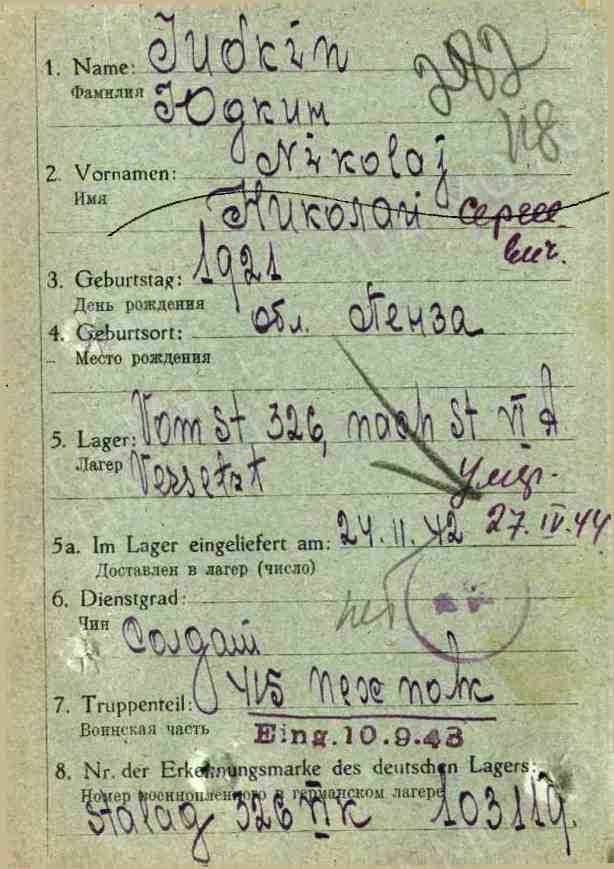 1. Name: Judkin
Фамилия Юдкин
2. Vornamen: Nikolaj
Имя Николай Сергее
вич.
3. Geburtstag: 1921
День рождения
4. Geburtsort: обл. Пенза
Место рождения
5. Lager: Vom St. 326, nach St VI A
Лагер Versetzt
умер.
5a. Im Lager eingeliefert am: 24.11.42 27.IV.44
Доставлен в лагер (число)
6. Dienstgrad: нет
Чин Солдат
7. Truppenteil: 415 пех полк
Воинская часть Eing. 10.9.43
8. Nr. der Erkennungsmarke des deutschen Lagers:
Номер военнопленного в германском лагере
Stalag 326 VI K 103119.